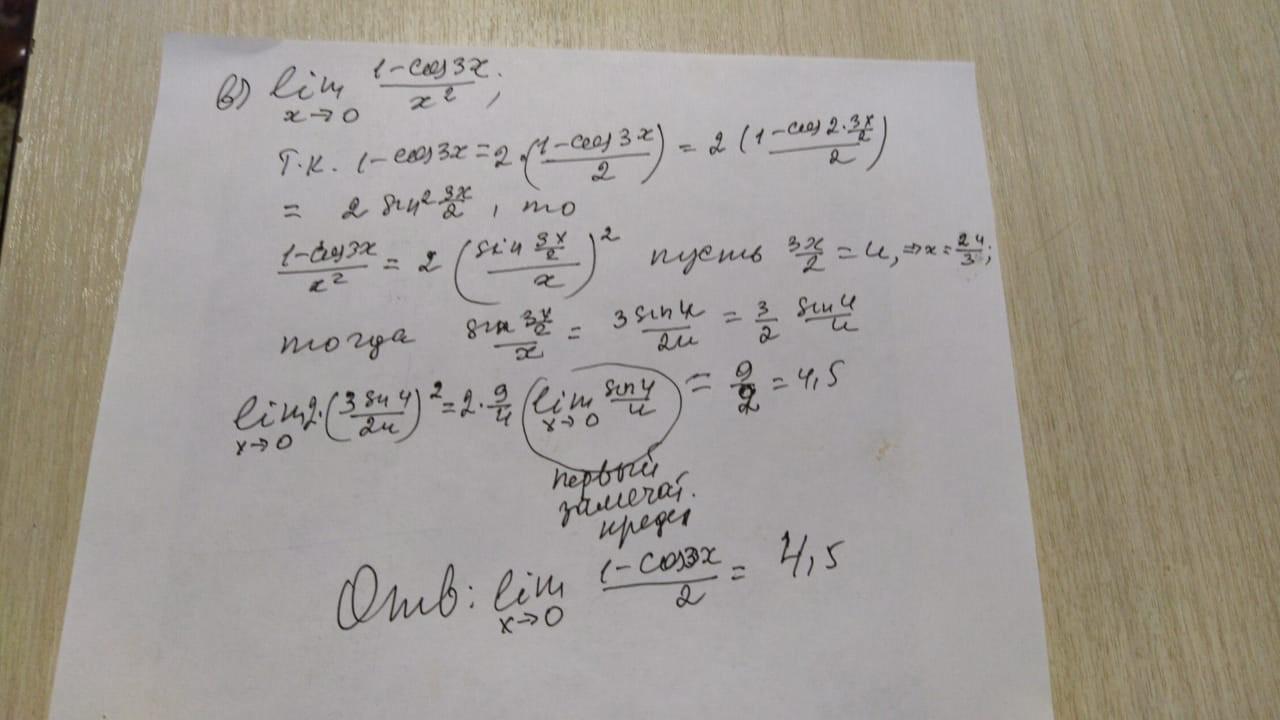 в) lim x→0 (1-cos3x)/x²;
Т.к. 1-cos3x = 2·((1-cos3x)/2) = 2((1-cos2·3x/2)/2)
= 2 sin² 3x/2, то
(1-cos3x)/x² = 2((sin 3x/2)/x)² пусть 3x/2 = u, ⇒ x = 2u/3;
тогда (sin 3x/2)/x = 3sinu/2u = 3/2 sinu/u
lim x→0 2·(3sinu/2u)² = 2·9/4 (lim x→0 sinu/u) = 9/2 = 4,5
первый
замечат.
предел
Отв: lim x→0 (1-cos3x)/2 = 4,5